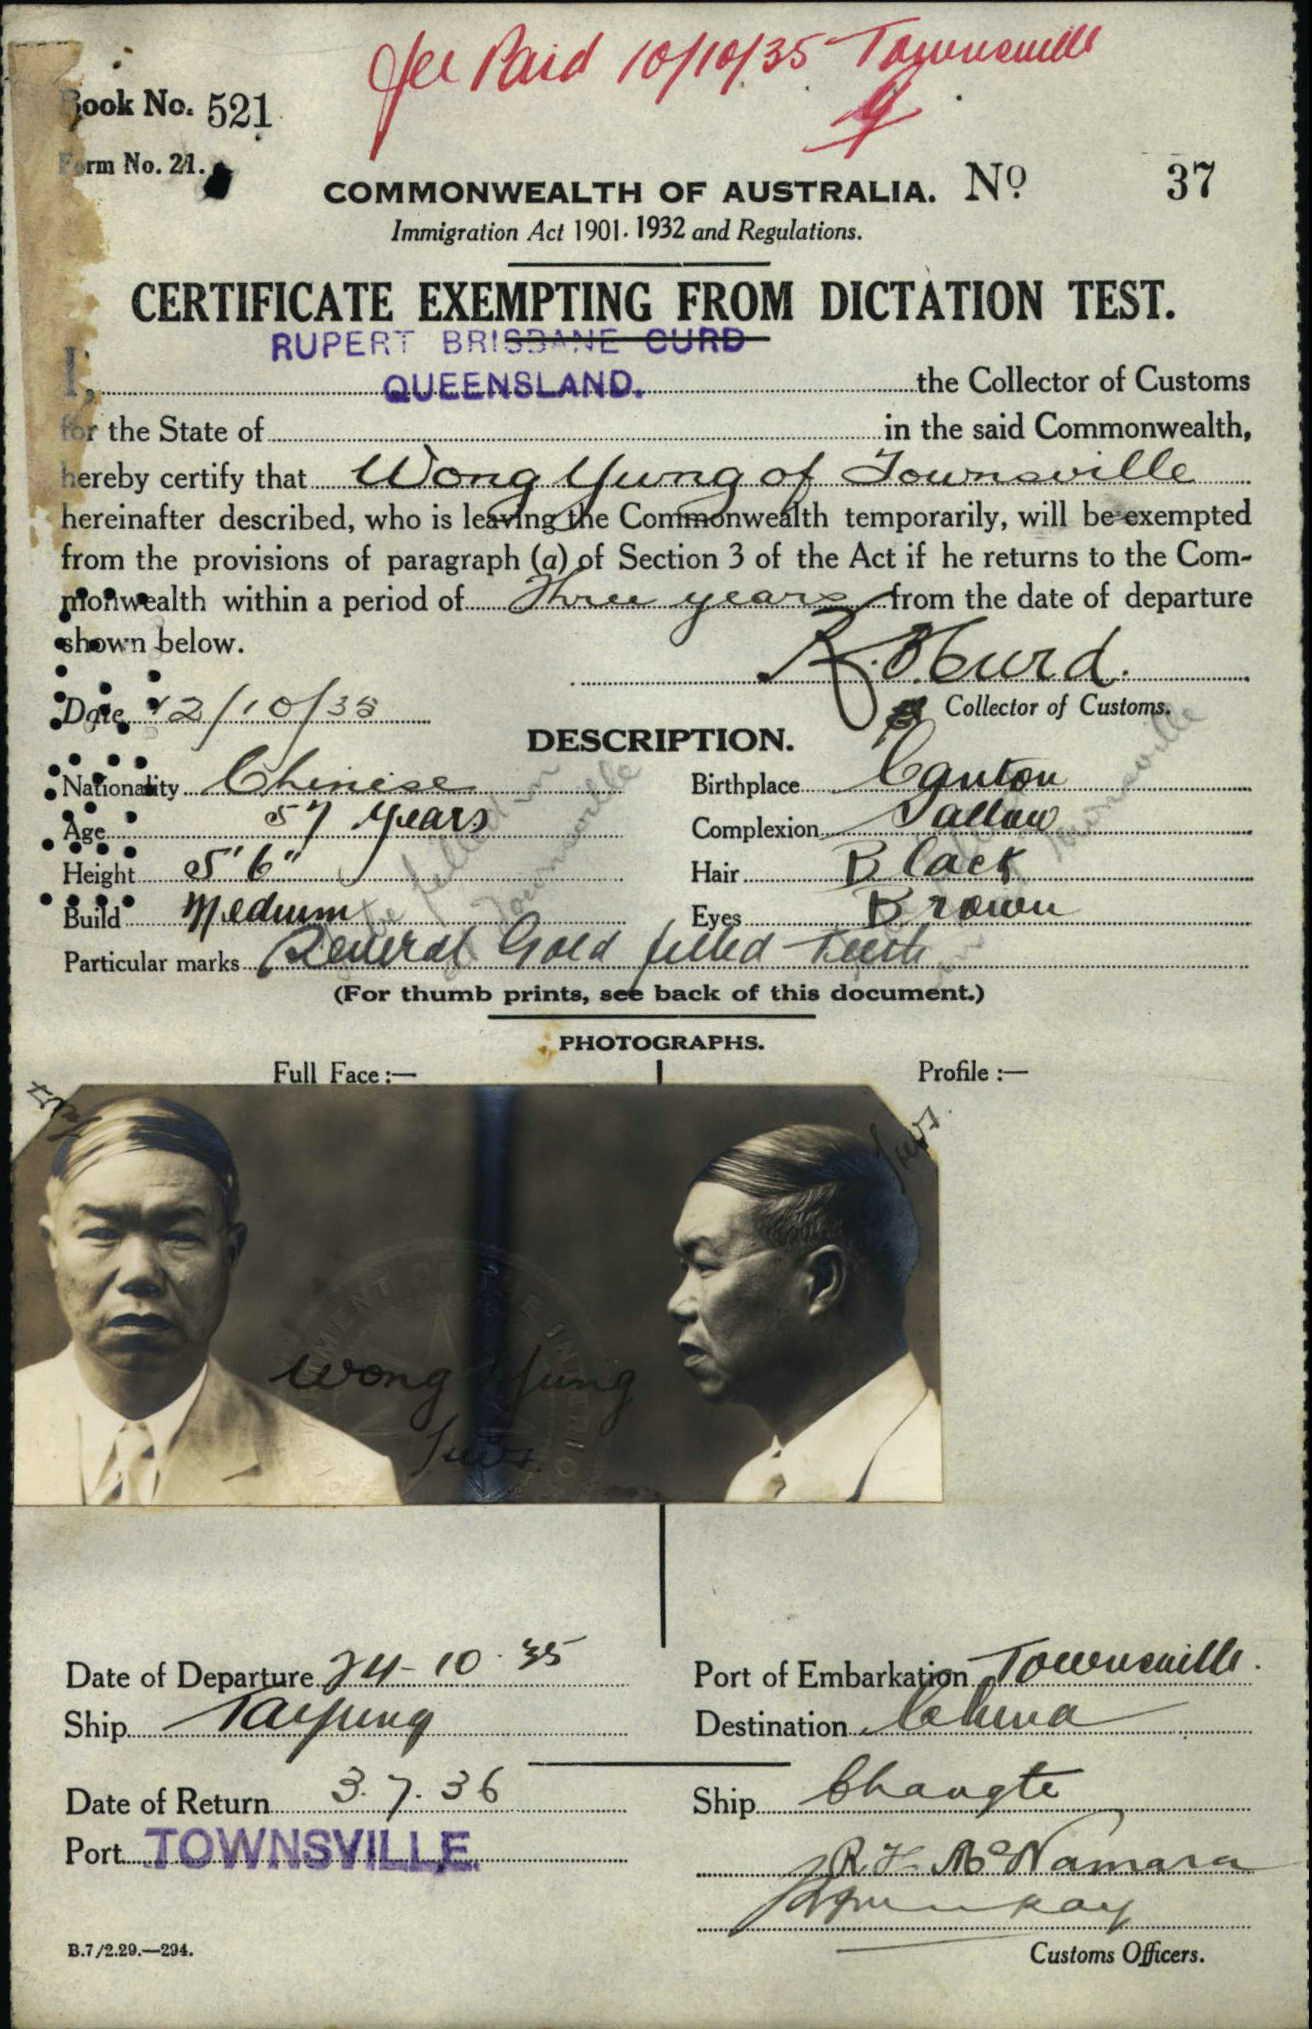 Fee Paid 10/10/35 Townsville
Book No. 521
Form No. 21.
COMMONWEALTH OF AUSTRALIA. No 37
Immigration Act 1901-1932 and Regulations.
CERTIFICATE EXEMPTING FROM DICTATION TEST.
RUPERT BRISBANE CURD
I, QUEENSLAND. the Collector of Customs
for the State of in the said Commonwealth,
hereby certify that Wong Yung of Townsville
hereinafter described, who is leaving the Commonwealth temporarily, will be exempted
from the provisions of paragraph (a) of Section 3 of the Act if he returns to the Com-
monwealth within a period of Three years from the date of departure
shown below.
R. B Curd.
Date 12/10/35 Collector of Customs.
DESCRIPTION.
Nationality Chinese Birthplace Canton
Age 57 years Complexion Sallow
Height 5' 6" Hair Black
Build Medium Eyes Brown
Particular marks Several Gold filled teeth
(For thumb prints, see back of this document.)
PHOTOGRAPHS.
Full Face :— Profile :—
Wong Yung
Date of Departure 24-10-35 Port of Embarkation Townsville.
Ship Taiping Destination China
Date of Return 3.7.36 Ship Changte
Port TOWNSVILLE
R F McNamara
Customs Officers.
B.7/2.29.—294.